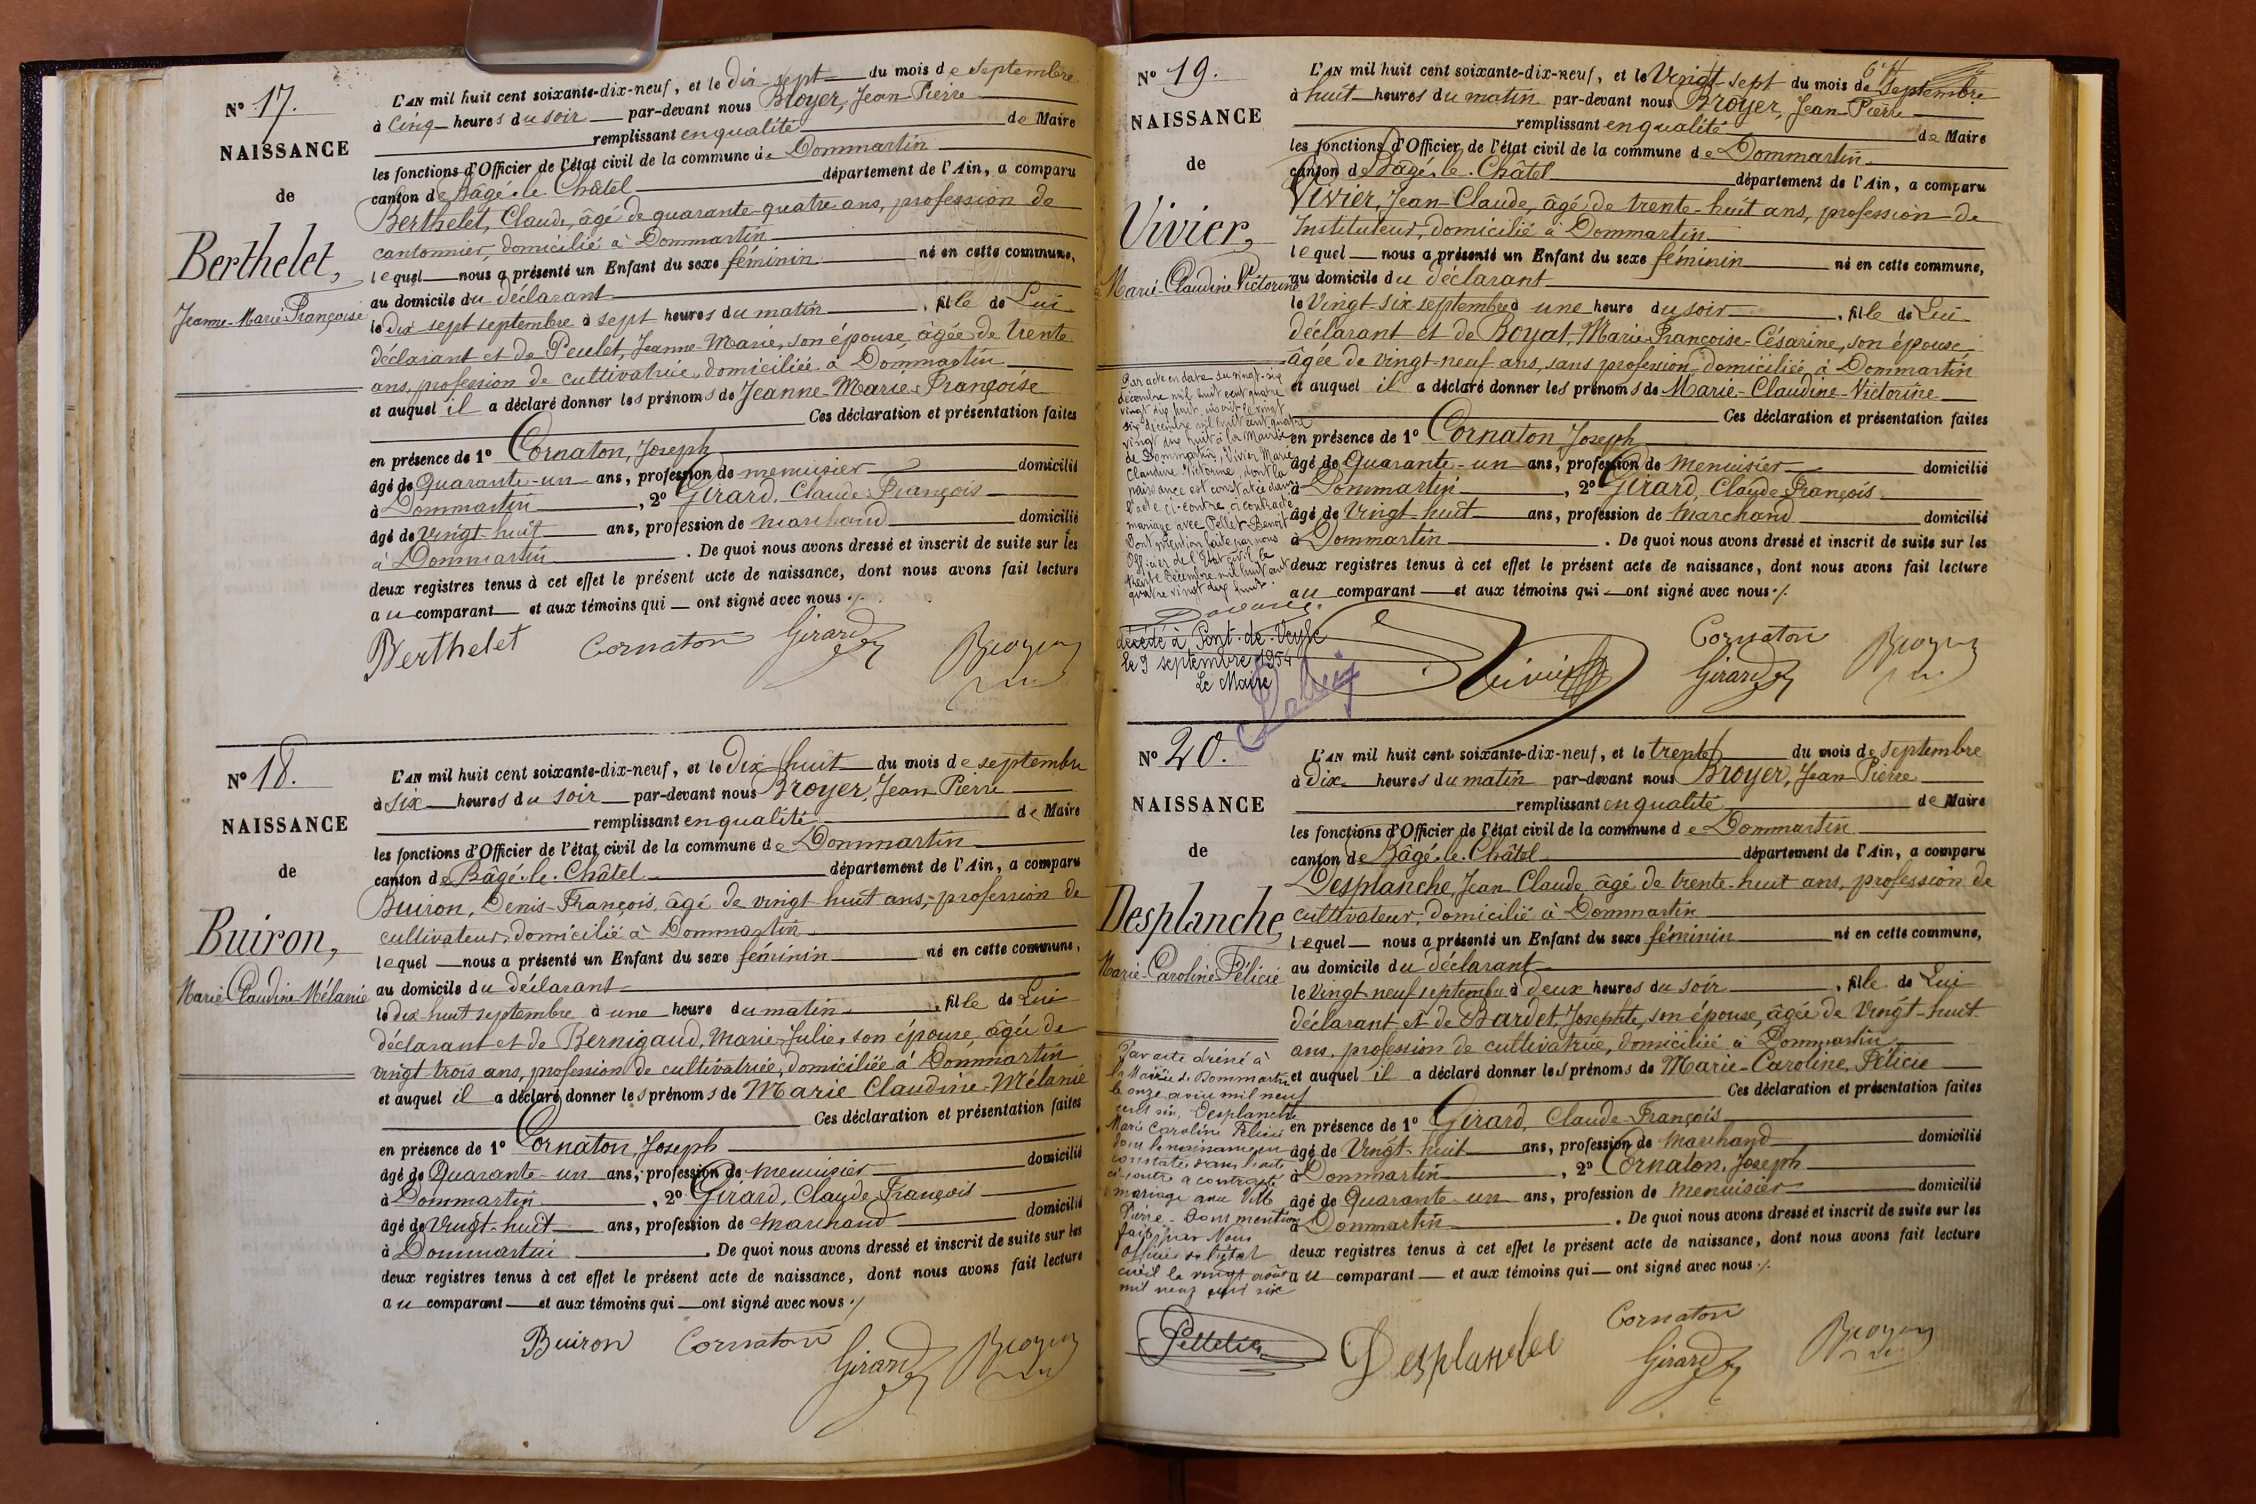 N° 17.
NAISSANCE
de
Berthelet,
Jeanne-Marie-Françoise
L'AN mil huit cent soixante-dix-neuf, et le dix-sept du mois de septembre
à cinq heures du soir par-devant nous Broyer, Jean Pierre
remplissant en qualité de Maire
les fonctions d'Officier de l'état civil de la commune de Dommartin
canton de Bâgé-le-Châtel département de l'Ain, a comparu
Berthelet, Claude, âgé de quarante-quatre ans, profession de
cantonnier, domicilié à Dommartin
lequel nous a présenté un Enfant du sexe féminin né en cette commune,
au domicile du déclarant
le dix sept septembre à sept heures du matin, fille de Lui
déclarant et de Peulet, Jeanne-Marie, son épouse, âgée de trente
ans, profession de cultivatrice, domiciliée à Dommartin
et auquel il a déclaré donner les prénoms de Jeanne-Marie-Françoise
Ces déclaration et présentation faites
en présence de 1° Cornaton, Joseph
âgé de Quarante-un ans, profession de menuisier domicilié
à Dommartin, 2° Girard, Claude-François
âgé de Vingt-huit ans, profession de marchand domicilié
à Dommartin. De quoi nous avons dressé et inscrit de suite sur les
deux registres tenus à cet effet le présent acte de naissance, dont nous avons fait lecture
au comparant et aux témoins qui ont signé avec nous ./.
Berthelet Cornaton Girard Broyer
N° 18.
NAISSANCE
de
Buiron,
Marie-Claudine-Mélanie
L'AN mil huit cent soixante-dix-neuf, et le Dix huit du mois de septembre
à six heures du soir par-devant nous Broyer, Jean Pierre
remplissant en qualité de Maire
les fonctions d'Officier de l'état civil de la commune de Dommartin
canton de Bâgé-le-Châtel département de l'Ain, a comparu
Buiron, Denis-François, âgé de vingt-huit ans, profession de
cultivateur, domicilié à Dommartin
lequel nous a présenté un Enfant du sexe féminin né en cette commune,
au domicile du déclarant
le dix-huit septembre à une heure du matin, fille de Lui
déclarant et de Bernigaud, Marie-Julie, son épouse, âgée de
vingt-trois ans, profession de cultivatrice, domiciliée à Dommartin
et auquel il a déclaré donner les prénoms de Marie Claudine-Mélanie
Ces déclaration et présentation faites
en présence de 1° Cornaton, Joseph
âgé de Quarante-un ans, profession de menuisier domicilié
à Dommartin, 2° Girard, Claude-François
âgé de Vingt-huit ans, profession de marchand domicilié
à Dommartin. De quoi nous avons dressé et inscrit de suite sur les
deux registres tenus à cet effet le présent acte de naissance, dont nous avons fait lecture
au comparant et aux témoins qui ont signé avec nous ./
Buiron Cornaton Girard Broyer
N° 19.
NAISSANCE
de
Vivier,
Marie-Claudine Victorine
L'AN mil huit cent soixante-dix-neuf, et le Vingt-sept du mois de Septembre
à huit heures du matin par-devant nous Broyer, Jean-Pierre
remplissant en qualité de Maire
les fonctions d'Officier de l'état civil de la commune de Dommartin
canton de Bâgé-le-Châtel département de l'Ain, a comparu
Vivier, Jean-Claude, âgé de trente-huit ans, profession de
Instituteur, domicilié à Dommartin
lequel nous a présenté un Enfant du sexe féminin né en cette commune,
au domicile du déclarant
le Vingt-six septembre à une heure du soir, fille de Lui
déclarant et de Boyat, Marie-Françoise-Césarine, son épouse
âgée de vingt-neuf ans, sans profession, domiciliée à Dommartin
et auquel il a déclaré donner les prénoms de Marie-Claudine-Victorine
Ces déclaration et présentation faites
en présence de 1° Cornaton Joseph
âgé de Quarante-un ans, profession de menuisier domicilié
à Dommartin, 2° Girard, Claude-François
âgé de Vingt-huit ans, profession de Marchand domicilié
à Dommartin. De quoi nous avons dressé et inscrit de suite sur les
deux registres tenus à cet effet le présent acte de naissance, dont nous avons fait lecture
au comparant et aux témoins qui ont signé avec nous ./.
Par acte en date du vingt-six
décembre mil huit cent quatre
vingt dix huit, inscrit le vingt
six décembre mil huit cent quatre
vingt dix huit à la Mairie
de Dommartin, Vivier Marie
Claudine Victorine, dont la
naissance est constatée dans
l'acte ci-contre, a contracté
mariage avec Pellet Benoit
Dont mention faite par nous
Officier de l'Etat civil le
trente décembre mil huit cent
quatre vingt dix huit.
décédé à Pont-de-Veyle
le 9 septembre 1954
Le Maire
Vivier Cornaton Girard Broyer
N° 20.
NAISSANCE
de
Desplanche,
Marie-Caroline-Félicie
L'AN mil huit cent soixante-dix-neuf, et le trente du mois de septembre
à Dix heures du matin par-devant nous Broyer, Jean Pierre
remplissant en qualité de Maire
les fonctions d'Officier de l'état civil de la commune de Dommartin
canton de Bâgé-le-Châtel département de l'Ain, a comparu
Desplanche, Jean Claude, âgé de trente-huit ans, profession de
cultivateur, domicilié à Dommartin
lequel nous a présenté un Enfant du sexe féminin né en cette commune,
au domicile du déclarant
le Vingt-neuf septembre à deux heures du soir, fille de Lui
déclarant et de Bardet, Josephte, son épouse, âgée de Vingt-huit
ans, profession de cultivatrice, domiciliée à Dommartin
et auquel il a déclaré donner les prénoms de Marie-Caroline, Félicie
Ces déclaration et présentation faites
en présence de 1° Girard, Claude-François
âgé de Vingt-huit ans, profession de marchand domicilié
à Dommartin, 2° Cornaton, Joseph
âgé de Quarante-un ans, profession de menuisier domicilié
à Dommartin. De quoi nous avons dressé et inscrit de suite sur les
deux registres tenus à cet effet le présent acte de naissance, dont nous avons fait lecture
au comparant et aux témoins qui ont signé avec nous ./.
Par acte dressé à
la Mairie de Dommartin
le onze avril mil neuf
cent six, Desplanche
Marie Caroline Félicie
dont la naissance est
constatée dans l'acte
ci-contre a contracté
mariage avec
Pierre. Dont mention
faite par Nous
Officier de l'état
civil le vingt août
mil neuf cent six
Pelletier Desplanche Cornaton Girard Broyer